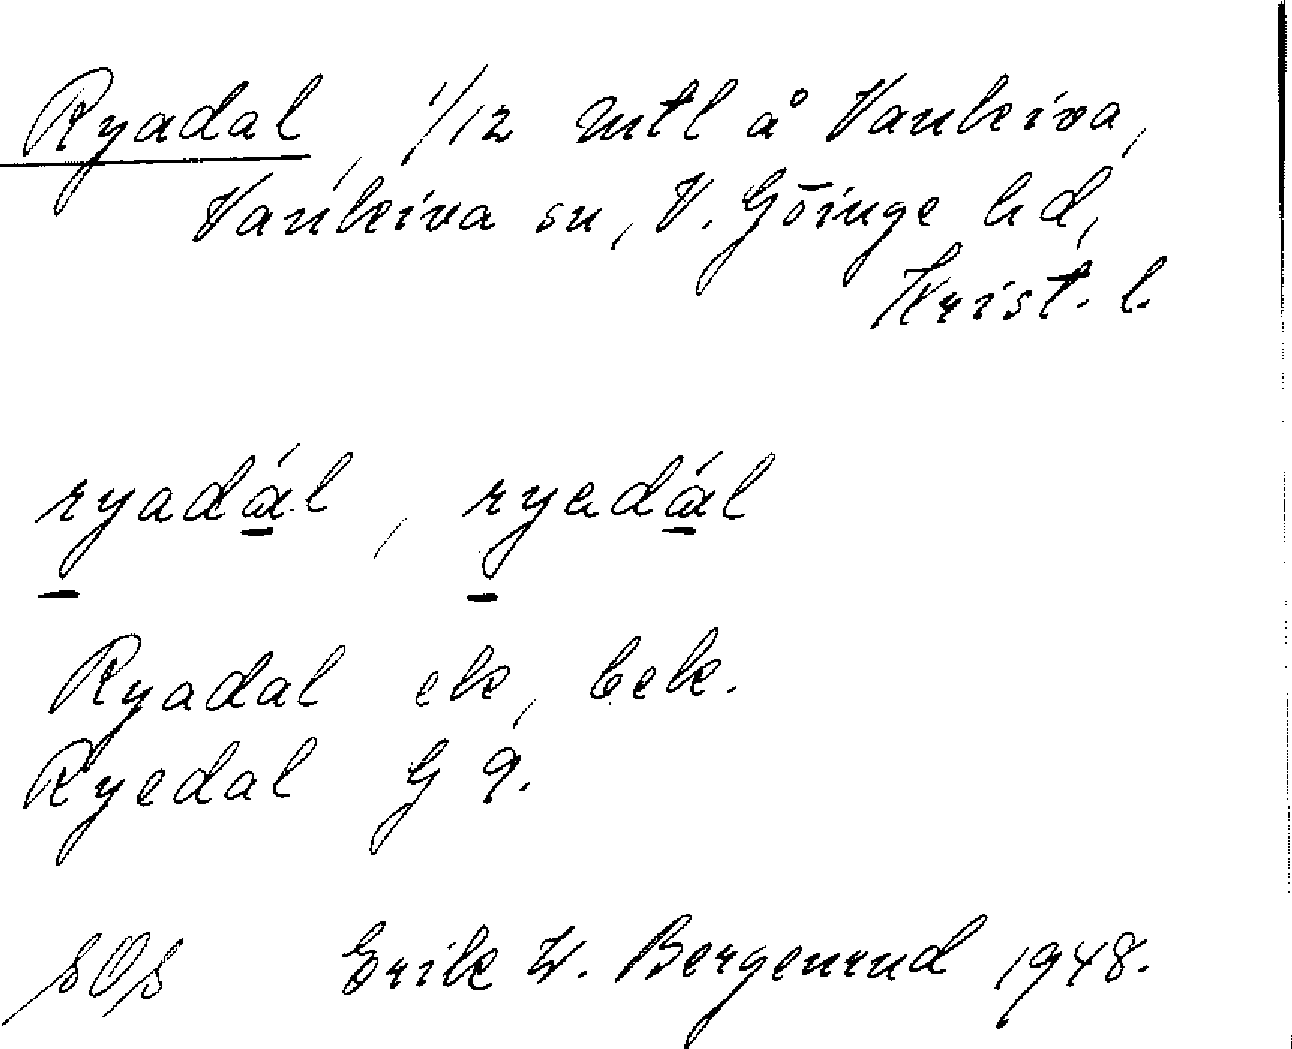 Ryadal, 1/12 mtl å Vankiva,
Vankiva sn, V. Göinge hd,
Krist. l.
ryadál, ryedál
Ryadal ek, bek.
Ryedal G 9.
SOS Erik W. Bergenrud 1948.